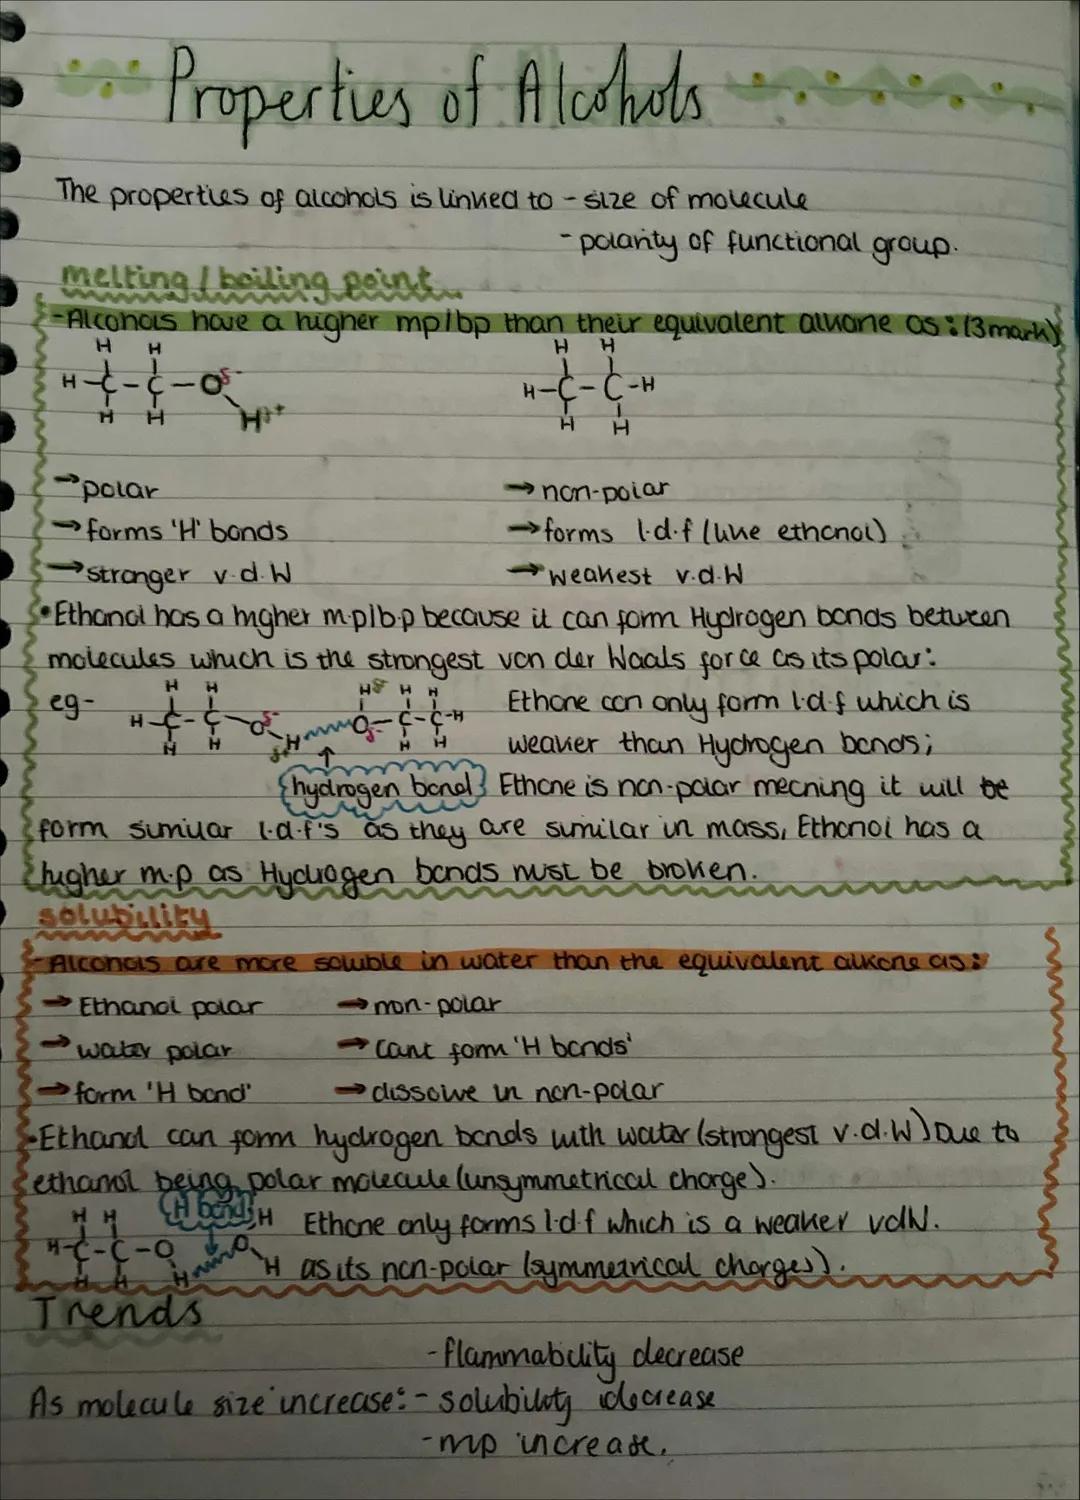 Properties of Alcohols
The properties of alcohols is linked to - size of molecule
- polarity of functional group.
melting / boiling point
- Alcohols have a higher mp/bp than their equivalent alkane as: (3 mark)
H H
H-C-C-O δ-
H H H δ+
H H
H-C-C-H
H H
→ polar → non-polar
→ forms 'H' bonds → forms l.d.f (like ethanol)
→ stronger v.d.W → weakest v.d.W
• Ethanol has a higher m.p/b.p because it can form Hydrogen bonds between
molecules which is the strongest van der Waals force as its polar:
eg- Ethane can only form l.d.f which is
H H
H-C-C-O δ-
H H H δ+
H δ+ H H
O-C-C-H
δ- H H
weaker than Hydrogen bonds;
hydrogen bond Ethane is non-polar meaning it will be
form similar l.d.f's as they are similar in mass, Ethanol has a
higher m.p as Hydrogen bonds must be broken.
solubility
- Alcohols are more soluble in water than the equivalent alkane as:
→ Ethanol polar → non-polar
→ water polar → cant form 'H bonds'
→ form 'H bond' → dissolve in non-polar
- Ethanol can form hydrogen bonds with water (strongest v.d.W) Due to
ethanol being polar molecule (unsymmetrical charge).
H bond
H H H Ethane only forms l.d.f which is a weaker vdW.
H-C-C-O O
H H H H as its non-polar (symmetrical charges).
Trends
- flammability decrease
As molecule size increase: - solubility decrease
- mp increase.